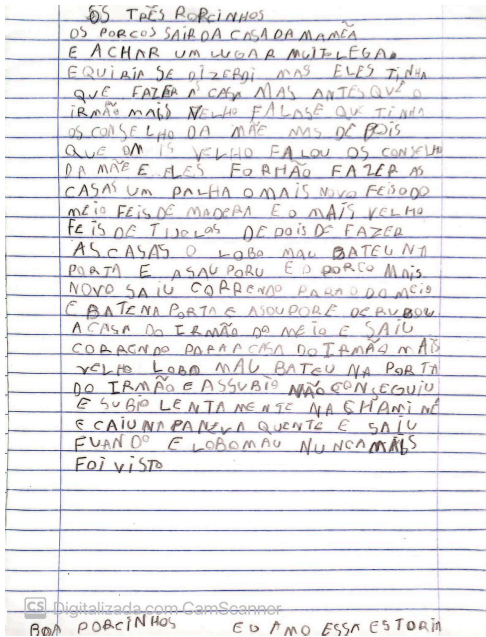 OS TRÊS PORCINHOS
OS PORCOS SAIR DA CASA DA MAMÊA
E ACHAR UM LUGAR MUITO LEGAL
EQUIRIA SE DIZERDI MAS ELES TINHA
QUE FAZER A CASA MAS ANTES QUE O
IRMÃO MAIS VELHO FALASE QUE TINHA
OS CONSELHO DA MÃE MAS DE POIS
QUE OM IS VELHO FALOU OS CONSELHO
DA MÃE E ELES FORMÃO FAZER AS
CASAS UM PALHA O MAIS NOVO FEIS O DO
MEIO FEIS DE MADERA E O MAIS VELHO
FEIS DE TIJOLOS DE POIS DE FAZER
AS CASAS O LOBO MAU BATEU NA
PORTA E ASAUPORU E O PORCO MAIS
NOVO SAIU CORRENDO PARA O DO MEIO
E BATE NA PORTA E ASOUPORE DERUBOU
A CASA DO IRMÃO DO MEIO E SAIU
CORRENDO PARA A CASA DO IRMÃO MAIS
VELHO LOBO MAU BATEU NA PORTA
DO IRMÃO E ASSUBIO NÃO CONSEGUIU
E SUBIO LENTAMENTE NA CHAMI NÉ
E CAIU NA PANELA QUENTE E SAIU
EUANDO E LOBO MAU NUNCA MAIS
FOI VISTO
CS Digitalizada com CamScanner
BOA PORCINHOS EU AMO ESSA ESTORIA